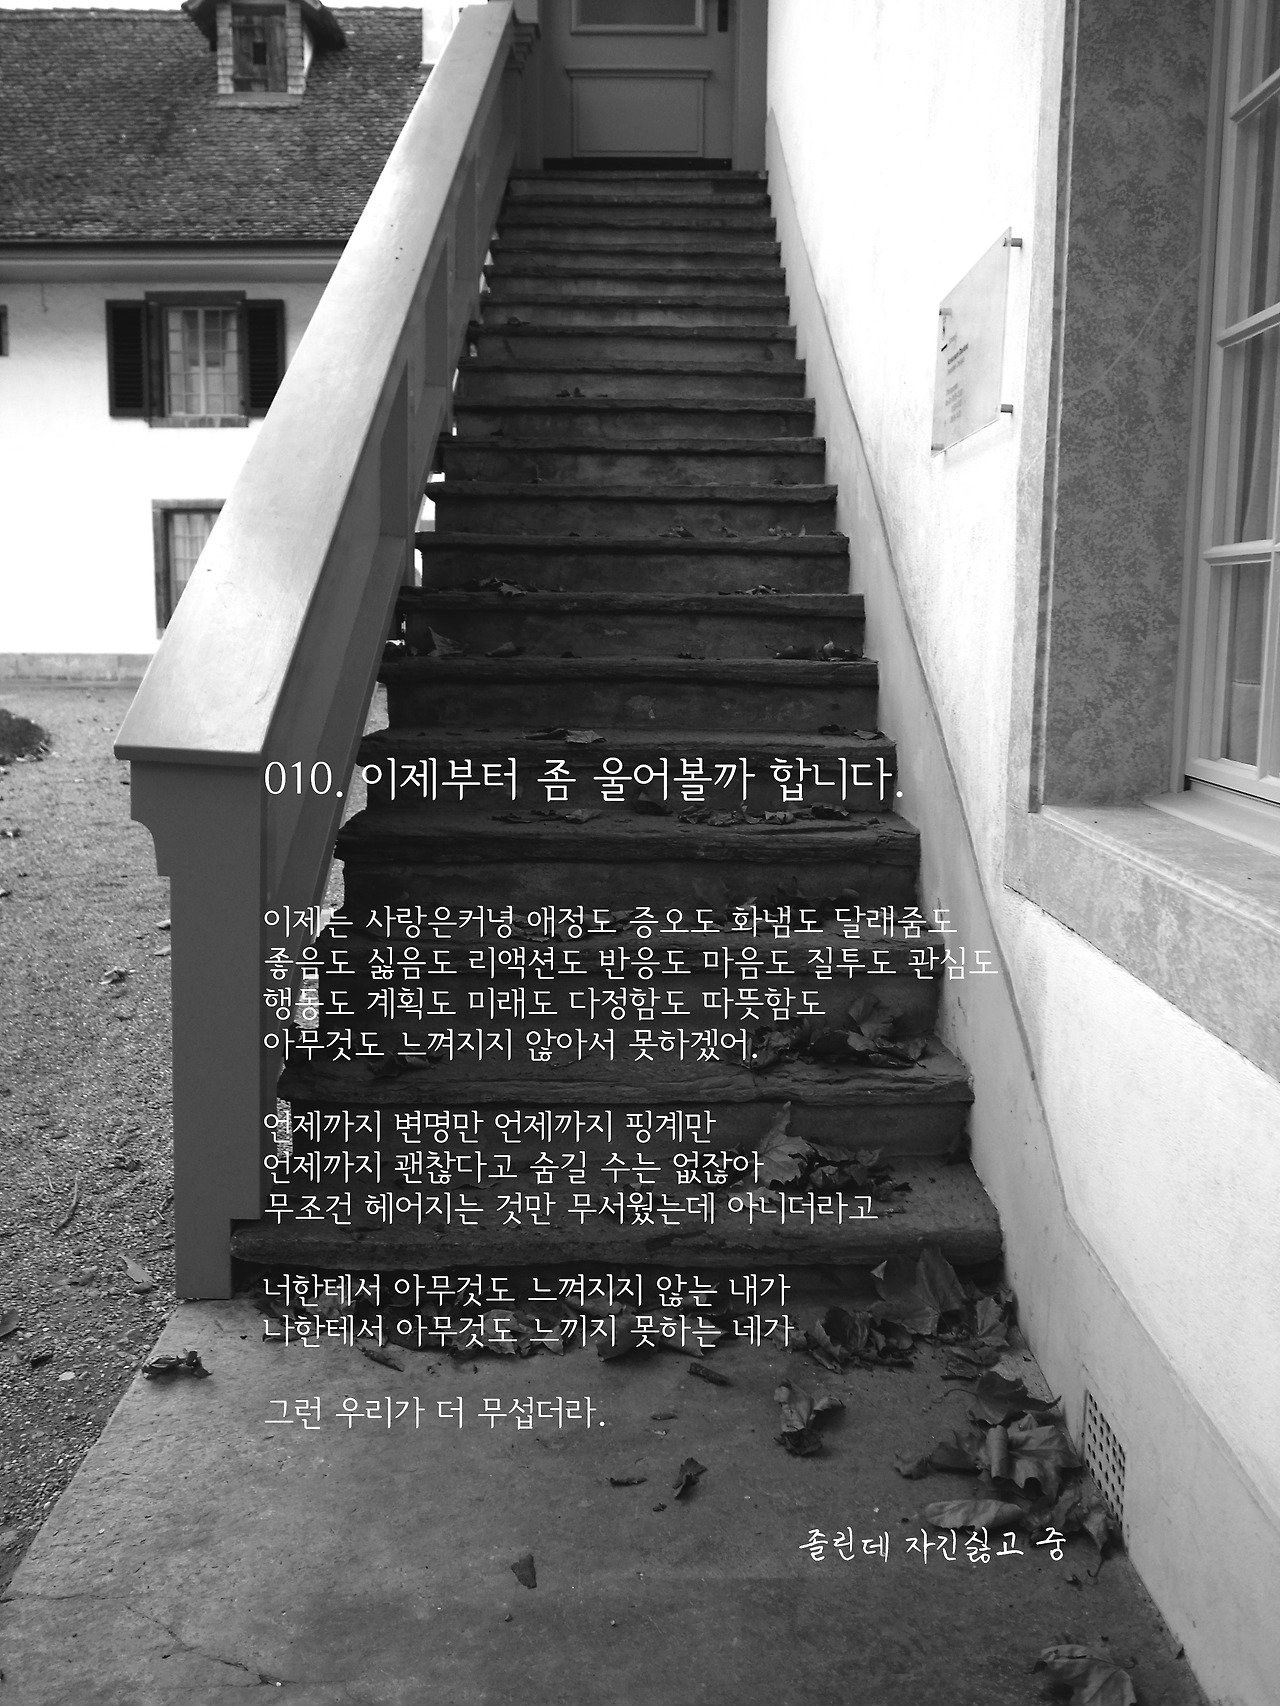 010. 이제부터 좀 울어볼까 합니다.
이제는 사랑은커녕 애정도 증오도 화냄도 달래줌도
좋음도 싫음도 리액션도 반응도 마음도 질투도 관심도
행동도 계획도 미래도 다정함도 따뜻함도
아무것도 느껴지지 않아서 못하겠어.
언제까지 변명만 언제까지 핑계만
언제까지 괜찮다고 숨길 수는 없잖아
무조건 헤어지는 것만 무서웠는데 아니더라고
너한테서 아무것도 느껴지지 않는 내가
나한테서 아무것도 느끼지 못하는 네가
그런 우리가 더 무섭더라.
졸린데 자긴싫고 중